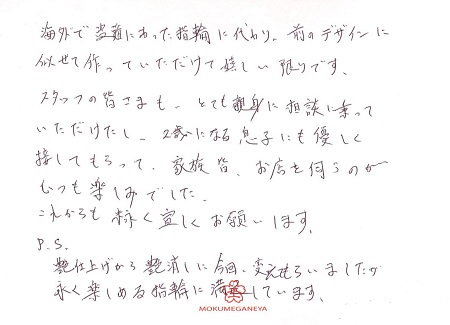 海外で盗難にあった指輪に代わり、前のデザインに
似せて作っていただけて嬉しい限りです。
スタッフの皆さまも、とても親身に相談に乗って
いただけたし、2歳になる息子にも優しく
接してもらって、家族皆、お店を伺うのが
いつも楽しみでした。
これからも末永く宜しくお願いします。
P.S.
艶仕上げから艶消しに今回、変えてもらいましたが
永く楽しめる指輪に満足しています。
MOKUMEGANEYA